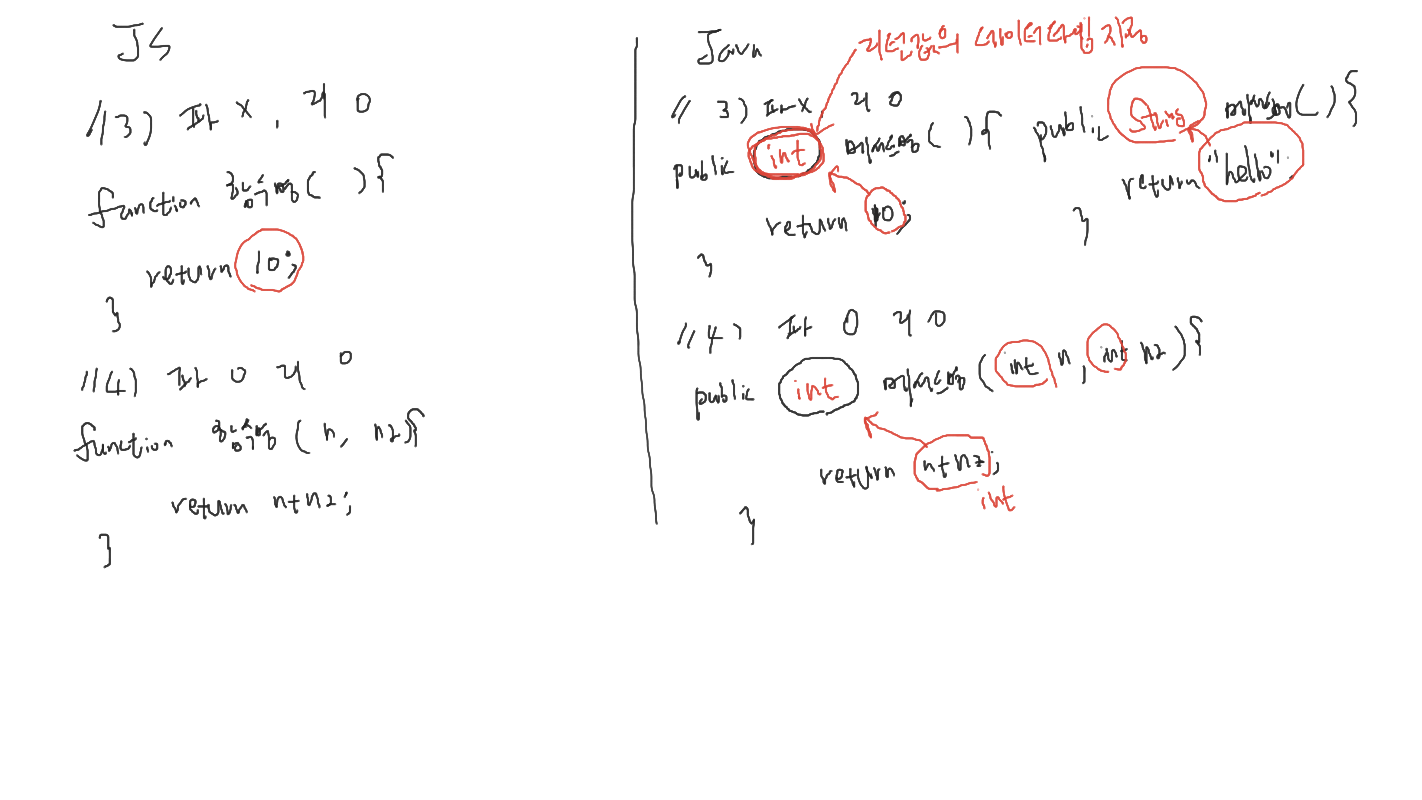 JS
//3) 파 x, 리 0
function 함수명( ){
return 10;
}
//4) 파 0 리 0
function 함수명(n, n2){
return n+n2;
}
Java
리턴값의 데이터타입 지정
// 3) 파x 리 0
public int 메서드명( ){
return 10;
}
public String 메서드명( ){
return "hello";
}
//4) 파 0 리 0
public int 메서드명(int n, int n2){
return n+n2;
int
}